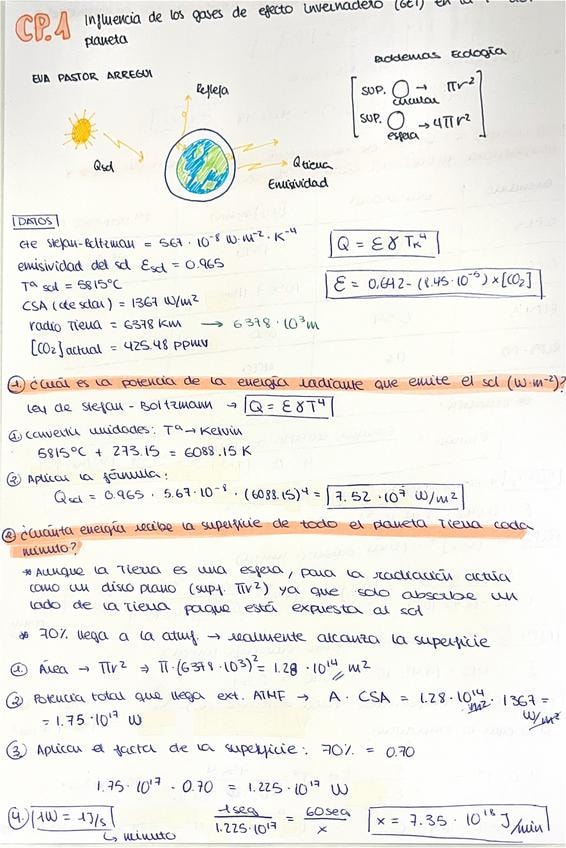 CP.1 Influencia de los gases de efecto invernadero (GEI) en la
planeta
EVA PASTOR ARREGUI
Problemas Ecología
Refleja
SUP. circular → πr²
SUP. esfera → 4πr²
Qsol
Qtierra
Emisividad
DATOS
cte Stefan-Boltzman = 5.67 · 10⁻⁸ W·m⁻²·K⁻⁴
Q = εγTK⁴
emisividad del sol Esol = 0.965
Tª sol = 5815°C
ε = 0,642 - (8.45 · 10⁻⁵) × [CO₂]
CSA (cte solar) = 1367 W/m²
radio Tierra = 6378 Km → 6378 · 10³ m
[CO₂] actual = 425.48 ppmv
1. ¿Cuál es la potencia de la energía radiante que emite el sol (W·m⁻²)?
Ley de Stefan-Boltzmann → Q = εγT⁴
① Convertir unidades: Tª → Kelvin
5815°C + 273.15 = 6088.15 K
② Aplicar la fórmula:
Qsol = 0.965 · 5.67·10⁻⁸ · (6088.15)⁴ = 7.52 · 10⁷ W/m²
2. ¿Cuánta energía recibe la superficie de todo el planeta Tierra cada
minuto?
* Aunque la Tierra es una esfera, para la radiación actúa
como un disco plano (sup. πr²) ya que solo absorbe un
lado de la Tierra porque está expuesta al sol
* 70% llega a la atmf. → realmente alcanza la superficie
① Área → πr² ⇒ π·(6378·10³)² = 1.28 · 10¹⁴ m²
② Potencia total que llega ext. ATMF → A · CSA = 1.28·10¹⁴ m² · 1367 W/m² =
= 1.75 · 10¹⁷ W
③ Aplicar el factor de la superficie: 70% = 0.70
1.75 · 10¹⁷ · 0.70 = 1.225 · 10¹⁷ W
4. 1W = 1J/s
↳ minuto
1 seg / 1.225·10¹⁷ = 60 seg / x
x = 7.35 · 10¹⁸ J/min